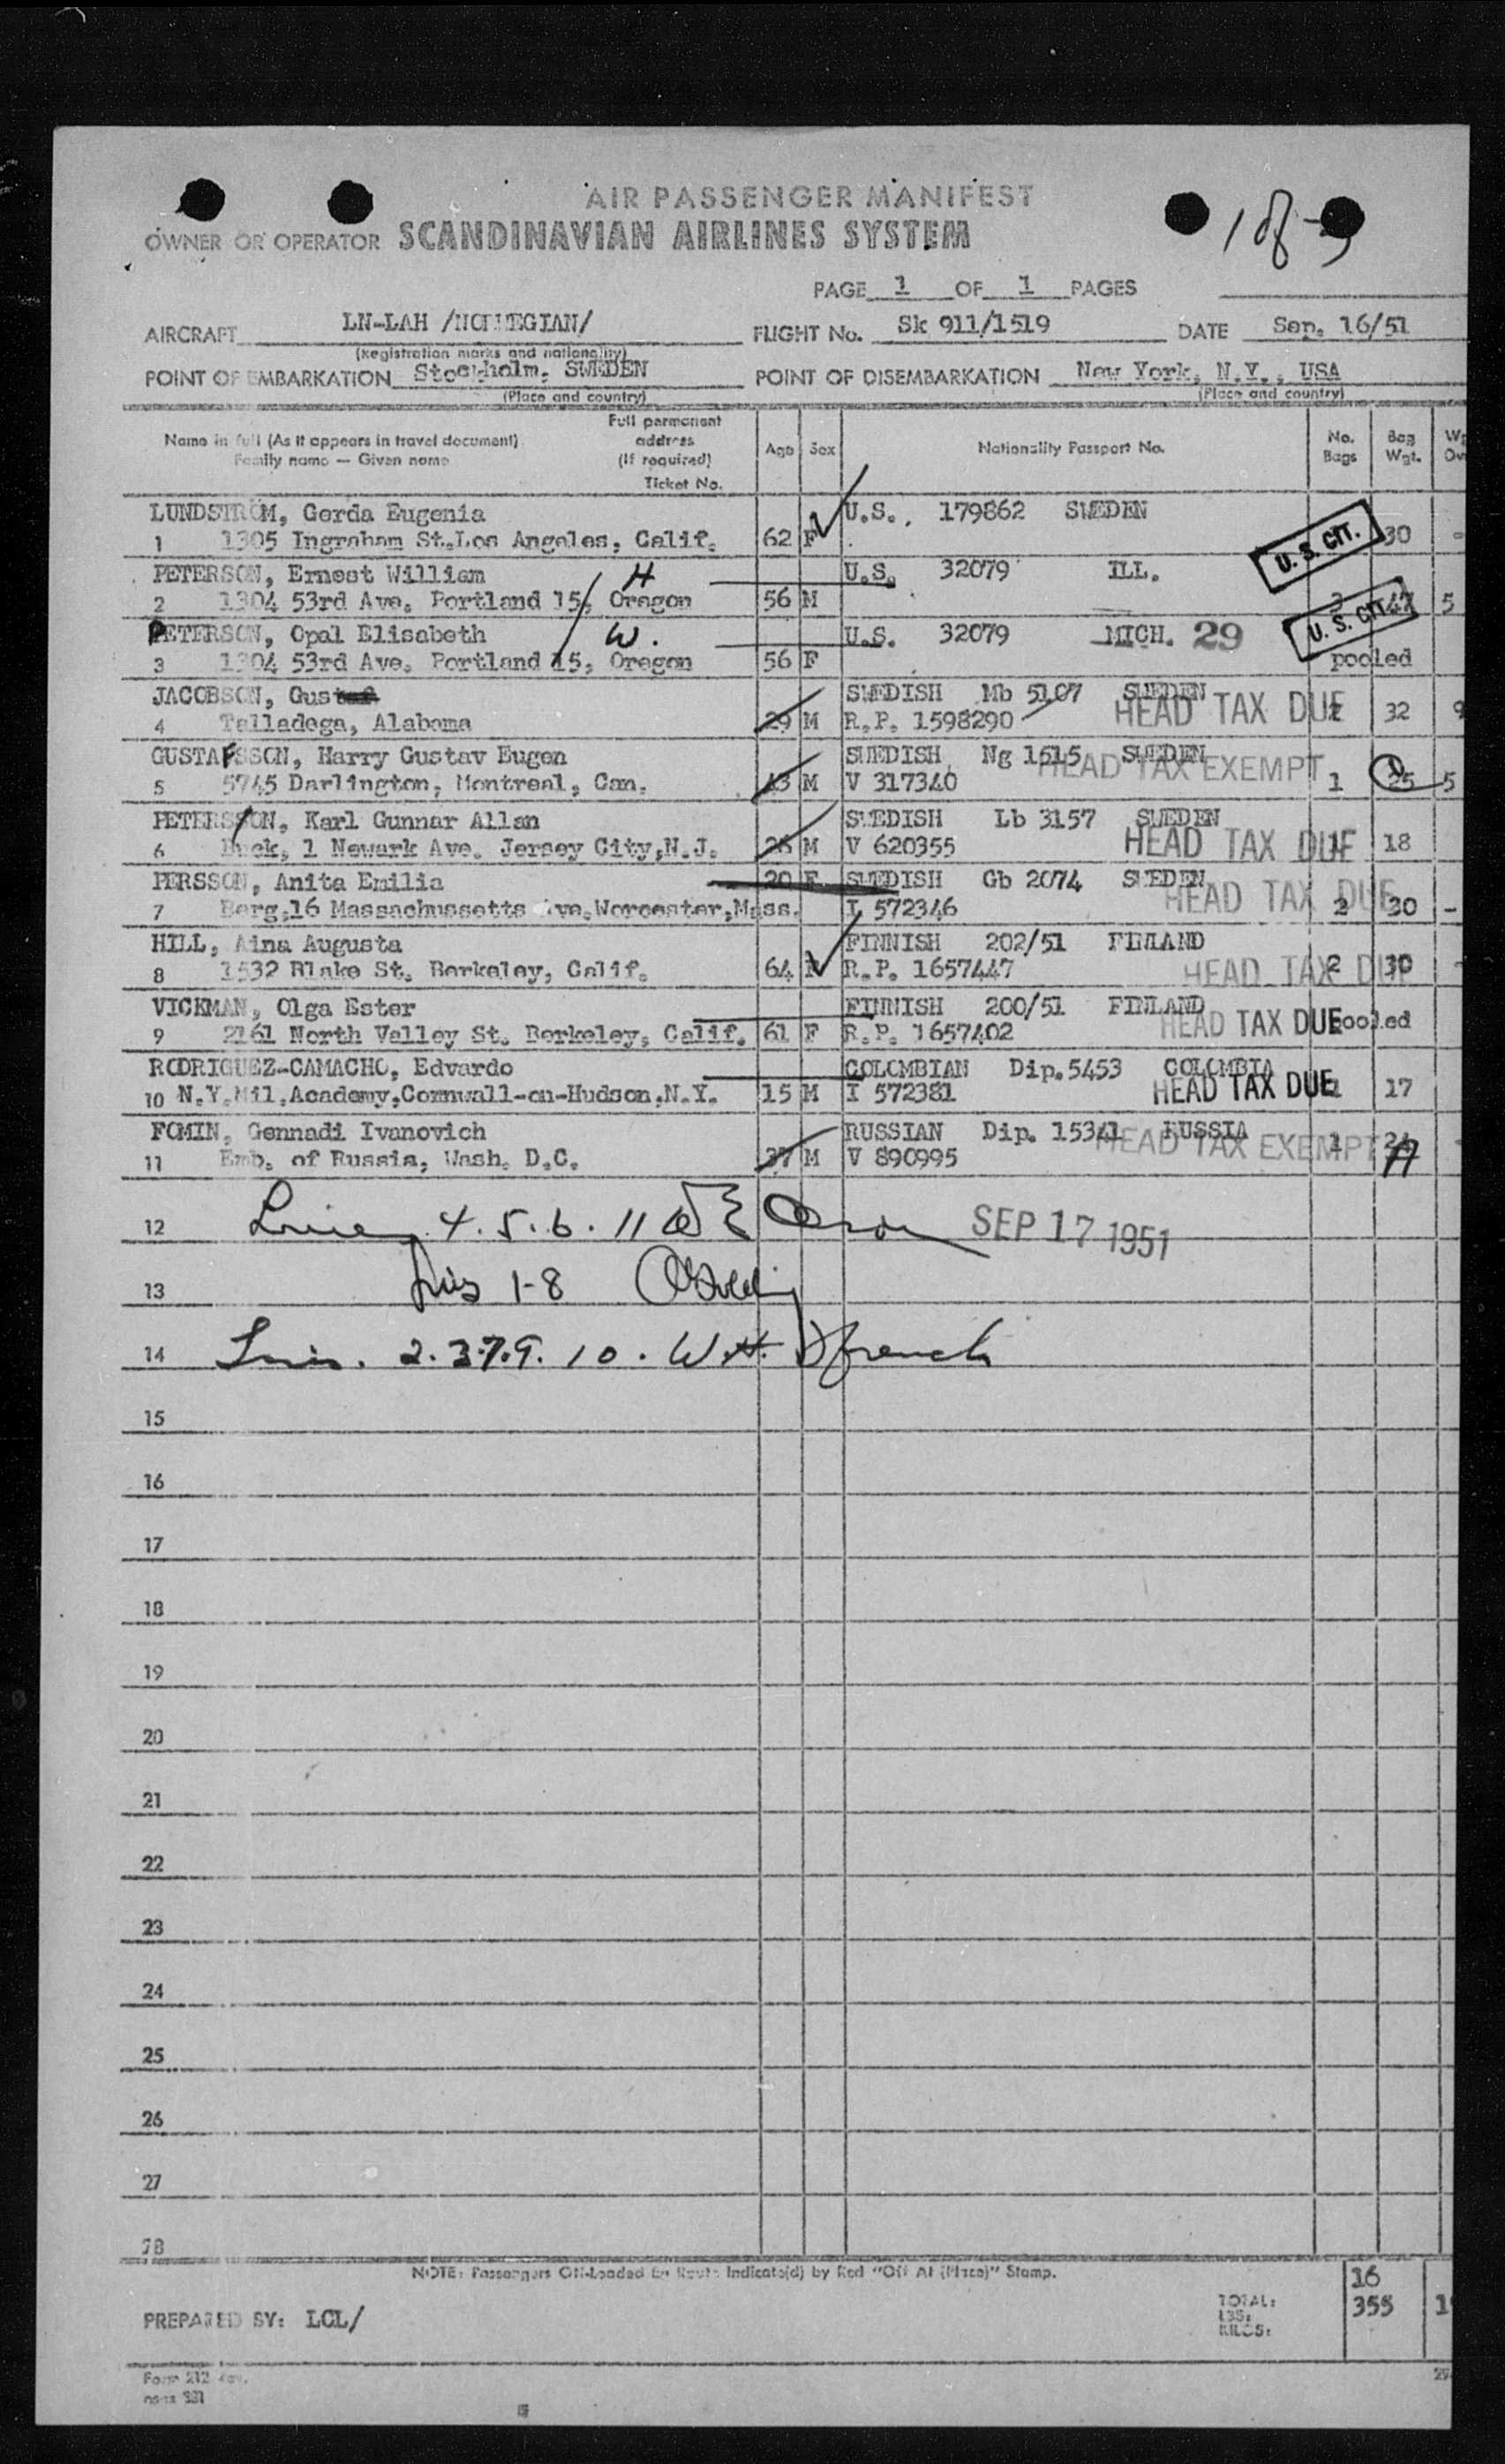 AIR PASSENGER MANIFEST
OWNER OR OPERATOR SCANDINAVIAN AIRLINES SYSTEM
PAGE 1 OF 1 PAGES
AIRCRAFT LN-LAH /NORWEGIAN/ FLIGHT No. Sk 911/1519 DATE Sep. 16/51
(Registration marks and nationality)
POINT OF EMBARKATION Stockholm, SWEDEN POINT OF DISEMBARKATION New York, N.Y., USA
(Place and country) (Place and country)
Name in full (As it appears in travel document) Family name — Given name Full permanent address (If required) Ticket No. Age Sex Nationality Passport No. No. Bags Bag Wgt.
LUNDSTRÖM, Gerda Eugenia U.S. 179862 SWEDEN
1 1305 Ingraham St.Los Angeles, Calif. 62 F U.S. CIT. 30 -
PETERSON, Ernest William H U.S. 32079 ILL.
2 1304 53rd Ave. Portland 15, Oregon 56 M 3 47 5
PETERSON, Opal Elisabeth W. U.S. 32079 MICH. 29 U.S. CIT.
3 1304 53rd Ave. Portland 15, Oregon 56 F pooled
JACOBSON, Gustaf SWEDISH Mb 5107 SWEDEN
4 Talladega, Alabama 29 M R.P. 1598290 HEAD TAX DUE 32 9
GUSTAFSSON, Harry Gustav Eugen SWEDISH Ng 1615 SWEDEN
5 5745 Darlington, Montreal, Can. 43 M V 317340 HEAD TAX EXEMPT 1 25 5
PETERSSON, Karl Gunnar Allan SWEDISH Lb 3157 SWEDEN
6 1 Newark Ave. Jersey City,N.J. M V 620355 HEAD TAX DUE 1 18
PERSSON, Anita Emilia 20 F SWEDISH Gb 2074 SWEDEN
7 Berg,16 Massachussetts Ave,Worcester,Mass. I 572346 HEAD TAX DUE 2 30 -
HILL, Aina Augusta FINNISH 202/51 FINLAND
8 1532 Blake St. Berkeley, Calif. 64 F R.P. 1657447 HEAD TAX DUE 2 30 -
VICKMAN, Olga Ester FINNISH 200/51 FINLAND
9 2161 North Valley St. Berkeley, Calif. 61 F R.P. 1657402 HEAD TAX DUE pooled
RODRIGUEZ-CAMACHO, Edvardo COLOMBIAN Dip.5453 COLOMBIA
10 N.Y.Mil.Academy,Cornwall-on-Hudson,N.Y. 15 M I 572381 HEAD TAX DUE 1 17
FOMIN, Gennadi Ivanovich RUSSIAN Dip. 15341 RUSSIA
11 Emb. of Russia, Wash. D.C. 37 M V 890995 HEAD TAX EXEMPT 1
12 4. 5. 6. 11 SEP 17 1951
13 1-8
14 2.3.7.9. 10. W.H. French
15
16
17
18
19
20
21
22
23
24
25
26
27
28
NOTE: Passengers Off-Loaded En Route Indicate(d) by Red "Off At (Place)" Stamp.
16
PREPARED BY: LCL/ TOTAL: 355
LBS:
KILOS:
Form 212 Rev.